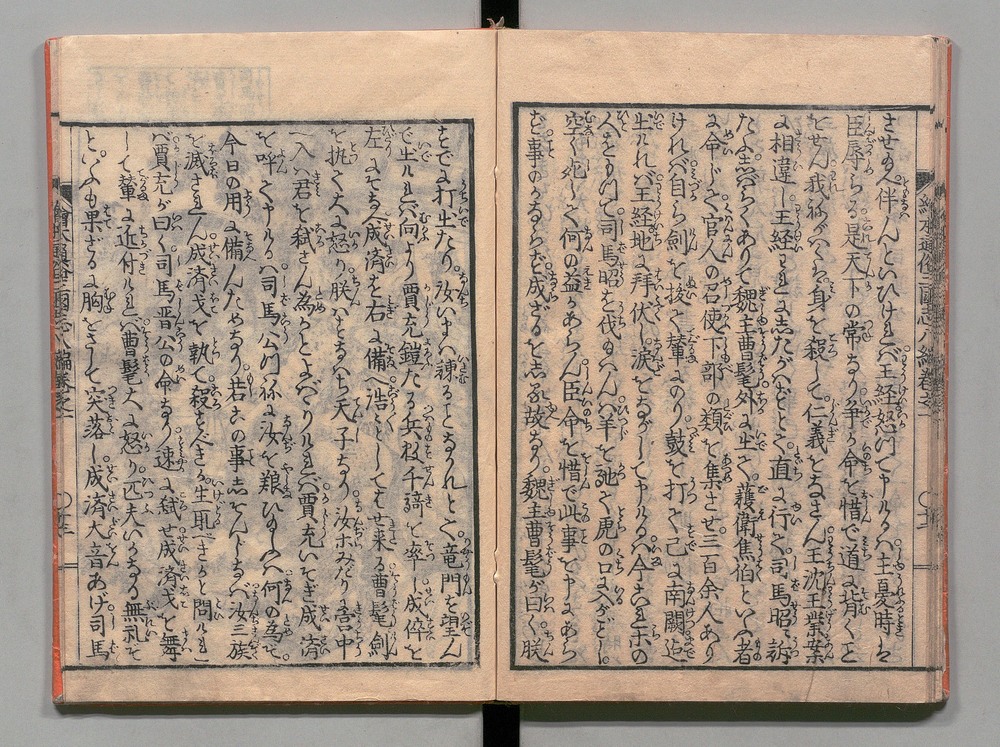 させ給へ伴んといひけれバ王経怒つて申けるハ主憂時ハ
臣辱らる是天下の常なり争か命を惜で道に背くこと
をせん我祢がハくハ身を殺して仁義をなさん王沈王業案
に相違し王経われにしたがハずとて直に行て司馬昭に訴
たり しばらくありて魏主曹髦外に出て護衛焦伯といふ者
に命じて官人の召使下部の類を集させ三百余人あり
けれバ自ら剣を抜て輦にのり鼓を打て已に南闕迄
出けれバ王経地に拝伏し涙をながして申けるハ今これホの
人をもつて司馬昭を伐給ハんハ羊を馳て虎の口に入がごとし
空く死して何の益かあらん臣命を惜で此事を申にあら
ず事のならざるを志る故なり魏主曹髦が曰く朕
繪本通俗三國志八編巻之一
すでに打出たり汝 諫ることなかれとて竜門を望ん
で出けれバ向より賈充鎧たる兵数千騎を率し成倅を
左にし成済を右に備へ浩々として寄来る曹髦剣
を執て大に怒り朕ハすなハち天子なり汝ホみだりに宮中
へ入ハ君を弑さん為かとよバハりけれバ賈充いそぎ成済
を呼て申けるハ司馬公 汝を粮ひ給へるハ何の為ぞ
今日の用に備んためなり若この事 汝三族
を滅されん成済戈を執て殺すべきか生取べきかと問けれバ
賈充が曰く司馬晋公の命なり速に弑せ成済戈を舞
して輦に近付けれバ曹髦大に怒り匹夫いかなる無礼ぞ
といふも果ざるに胸をさして突落し成済大音あげ司馬
繪本通俗三國志八編巻之一